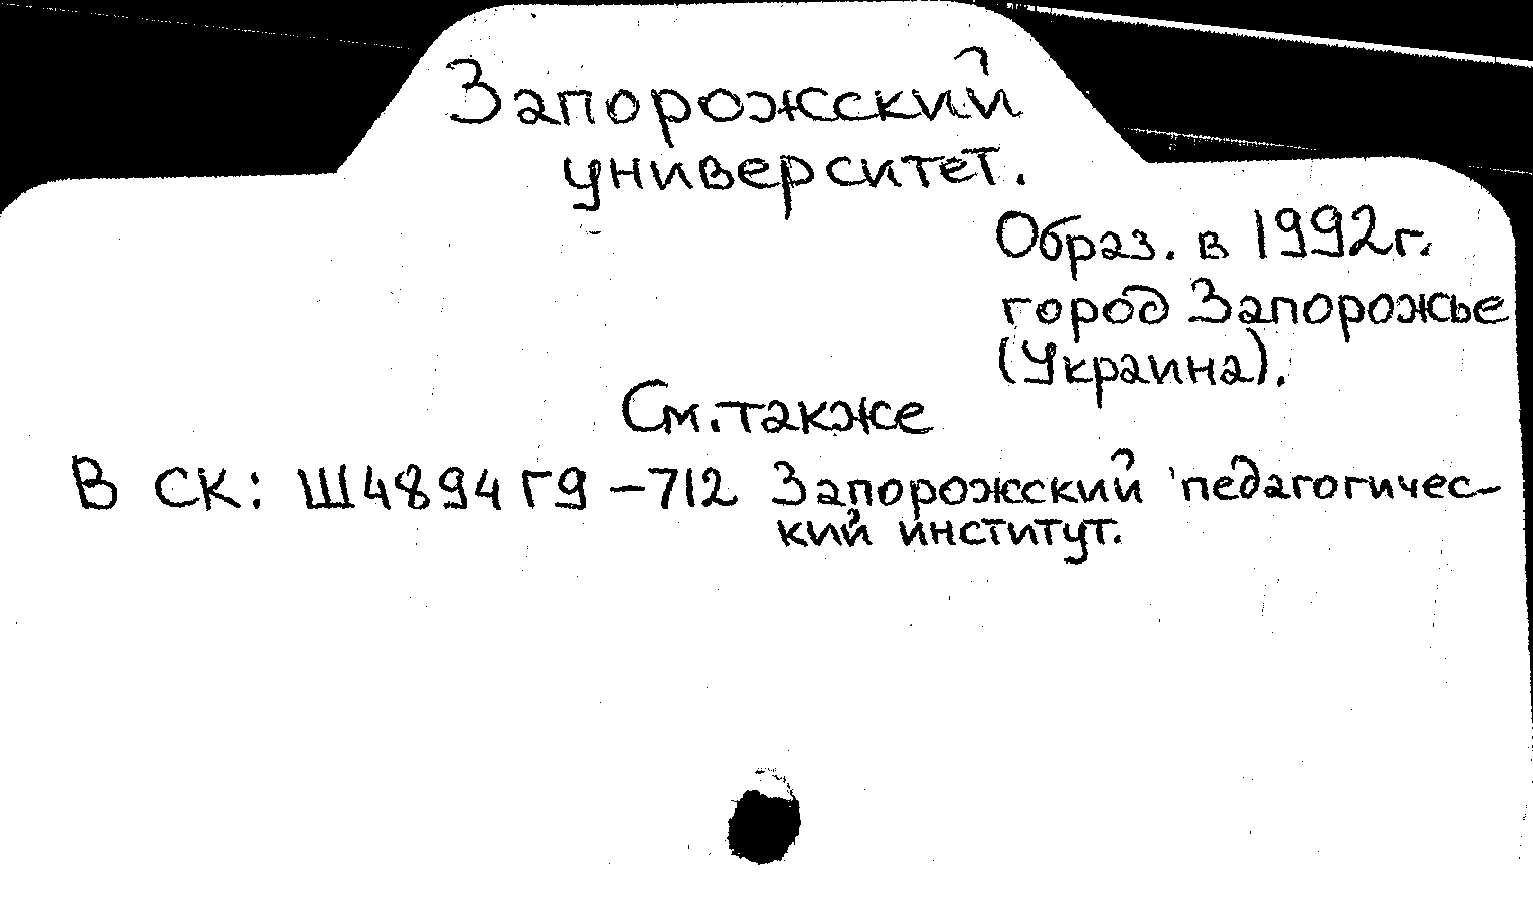 Запорожский
университет.
Образ. в 1992г.
город Запорожье
(Украина).
См. также
В СК: Ш4894Г9-712 Запорожский педагогичес-
кий институт.